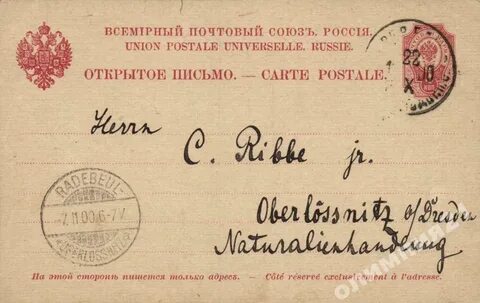 ВСЕМІРНЫЙ ПОЧТОВЫЙ СОЮЗЪ. РОССІЯ.
UNION POSTALE UNIVERSELLE. RUSSIE.
ОТКРЫТОЕ ПИСЬМО. — CARTE POSTALE.
22
X
Herrn
C. Ribbe jr.
RADEBEUL-
7.11.00.6-7V.
(OBERLÖSSNITZ)
Oberlössnitz b/Dresden
Naturalienhandlung
На этой сторонѣ пишется только адресъ. — Côté réservé exclusivement à l'adresse.